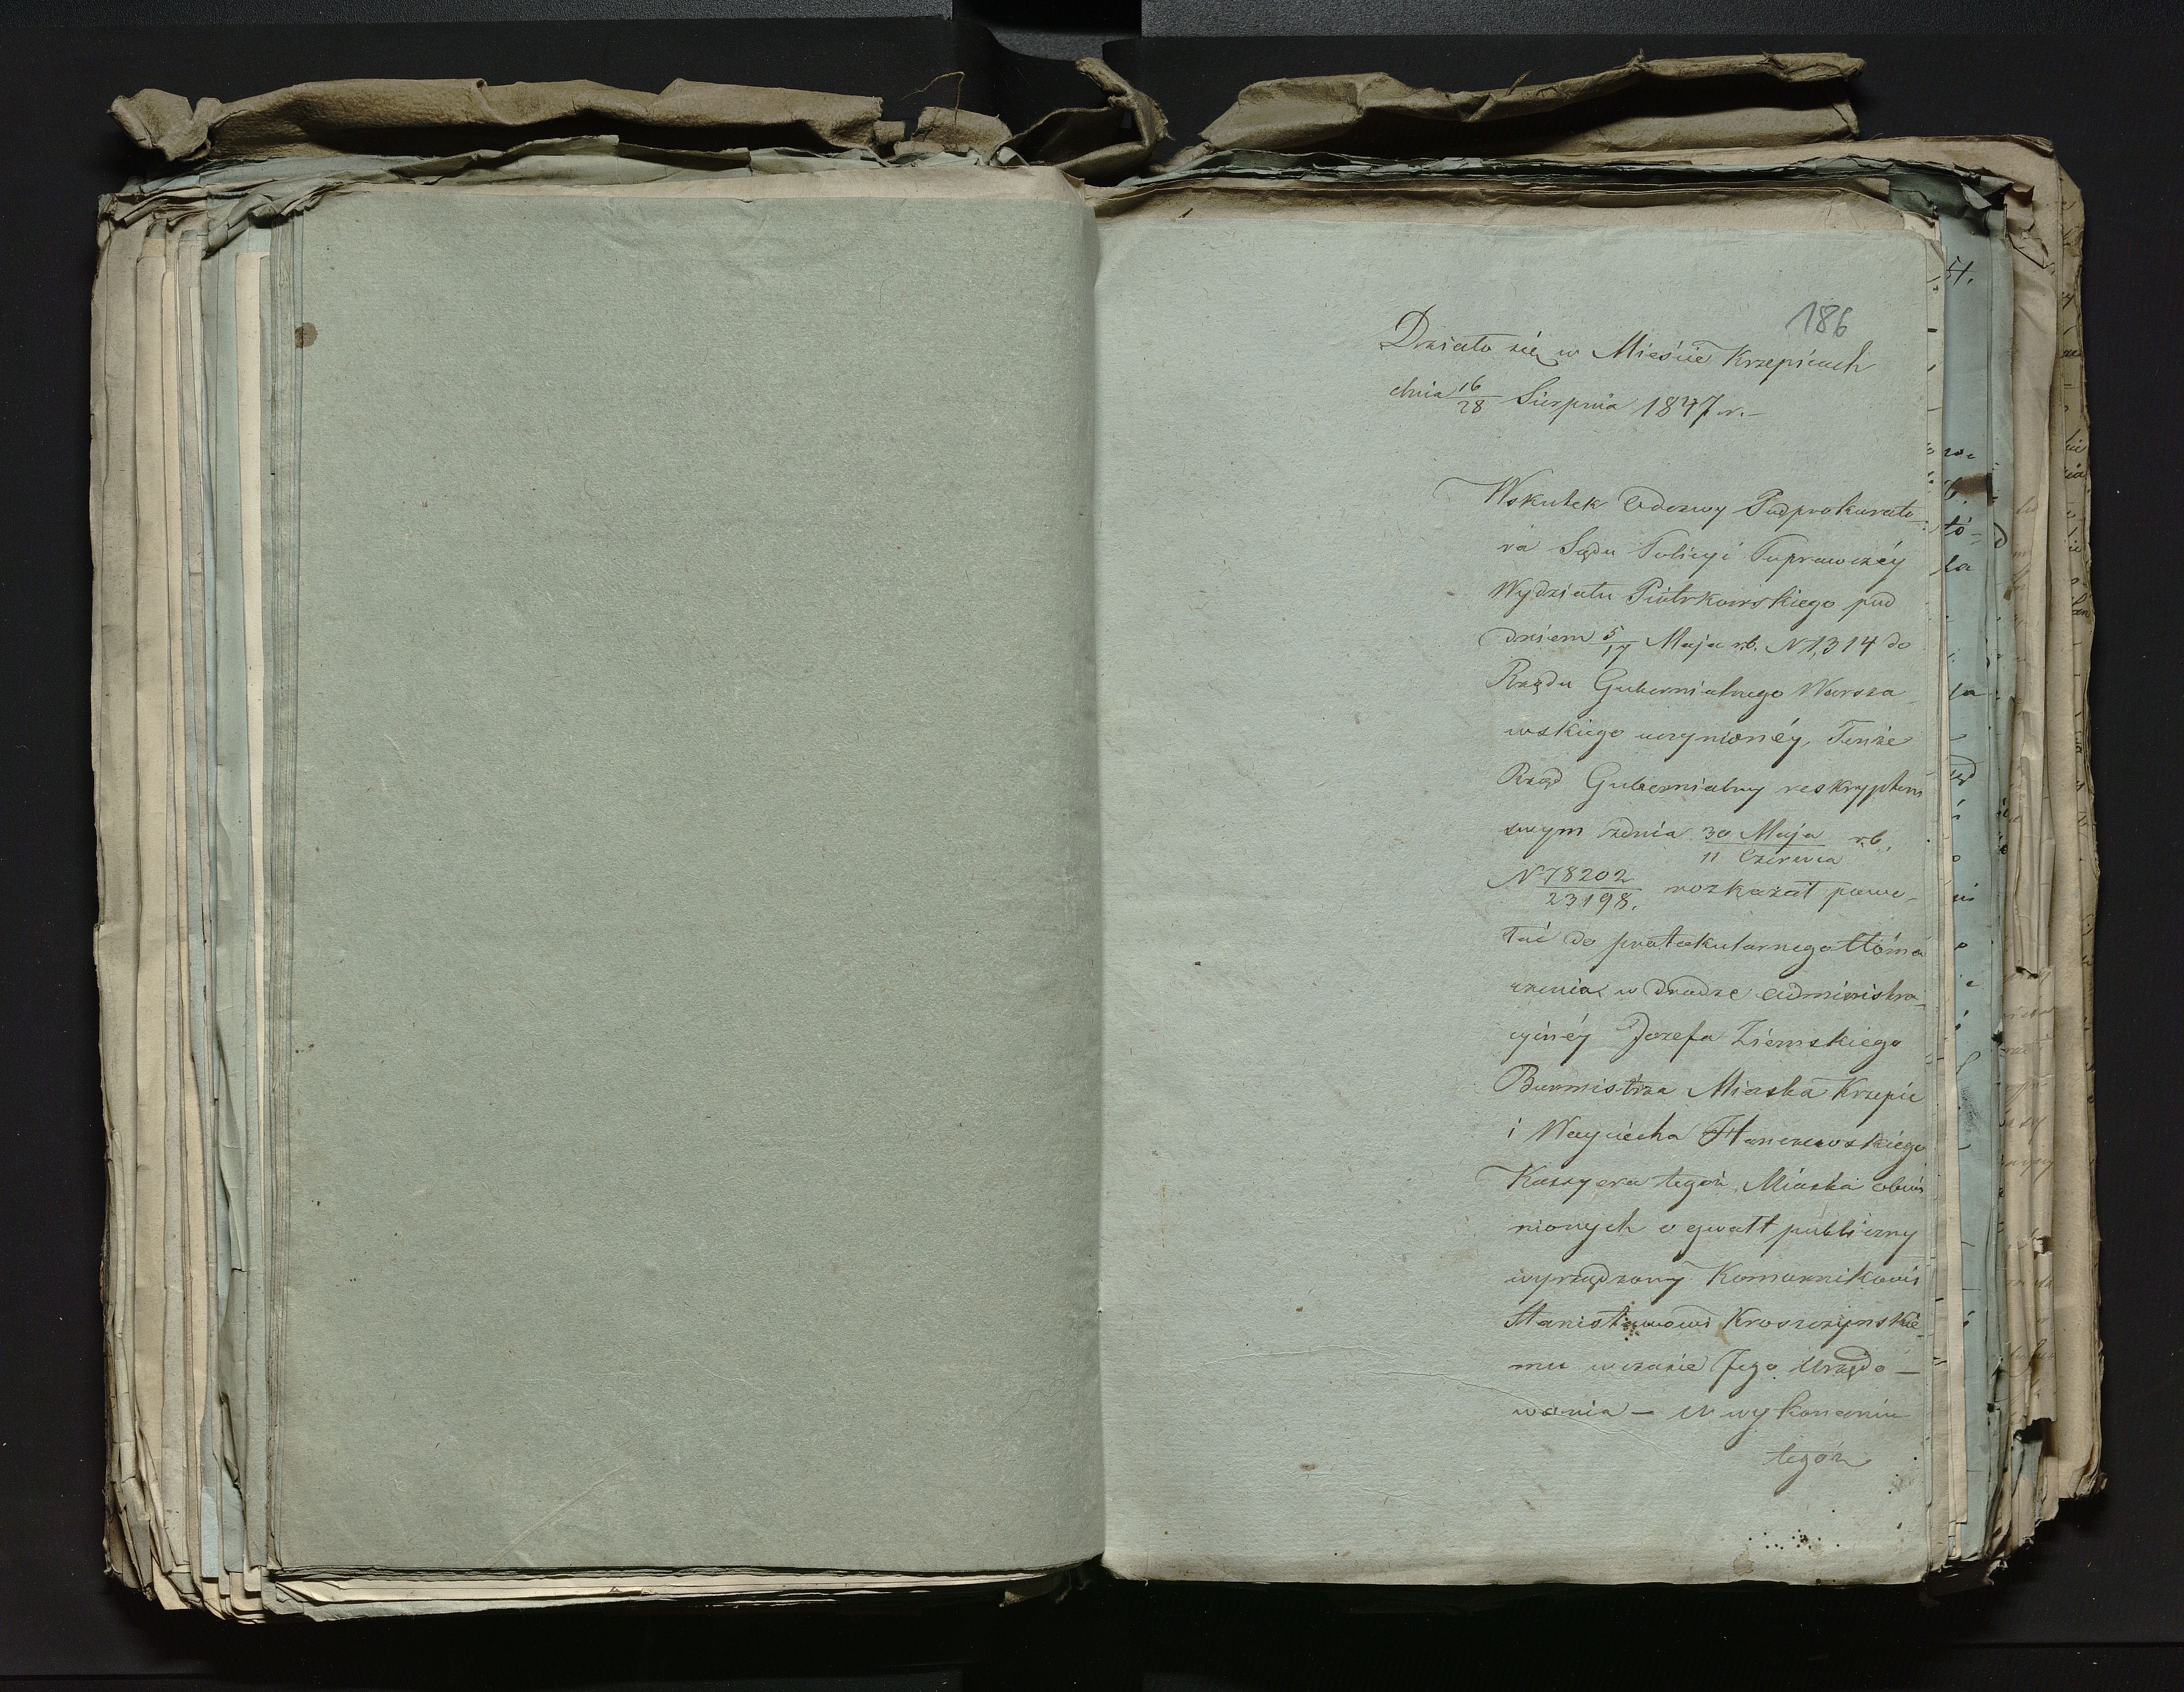 186
Działo się w Mieście Krzepicach
dnia 16/28 Sierpnia 1847 r. –
Wskutek Odezwy Podprokurato-
ra Sądu Policyi Poprawczéy
Wydziału Piotrkowskiego pod
dniem 5/17 Maja r.b. N 1,314 do
Rządu Gubernialnego Warsza-
wskiego uczynionéy, Tenże
Rząd Gubernialny reskryptem
swym z dnia 30 Maja/11 Czerwca r.b.
N 78202/23198. rozkazał powo-
łać do protokularnego tłóma
czenia w drodze administra-
cyinéy Jozefa Ziemskiego
Burmistrza Miasta Krzepic
i Woyciecha Stanczewskiego
Kassyera tegoż Miasta obwi
nionych o gwałt publiczny
wyrządzony Komornikowi
Stanisławowi Kroszczynskie-
mu w czasie Jego Urzędo –
wania – W wykonaniu
tegoż
51.
tó-
ła